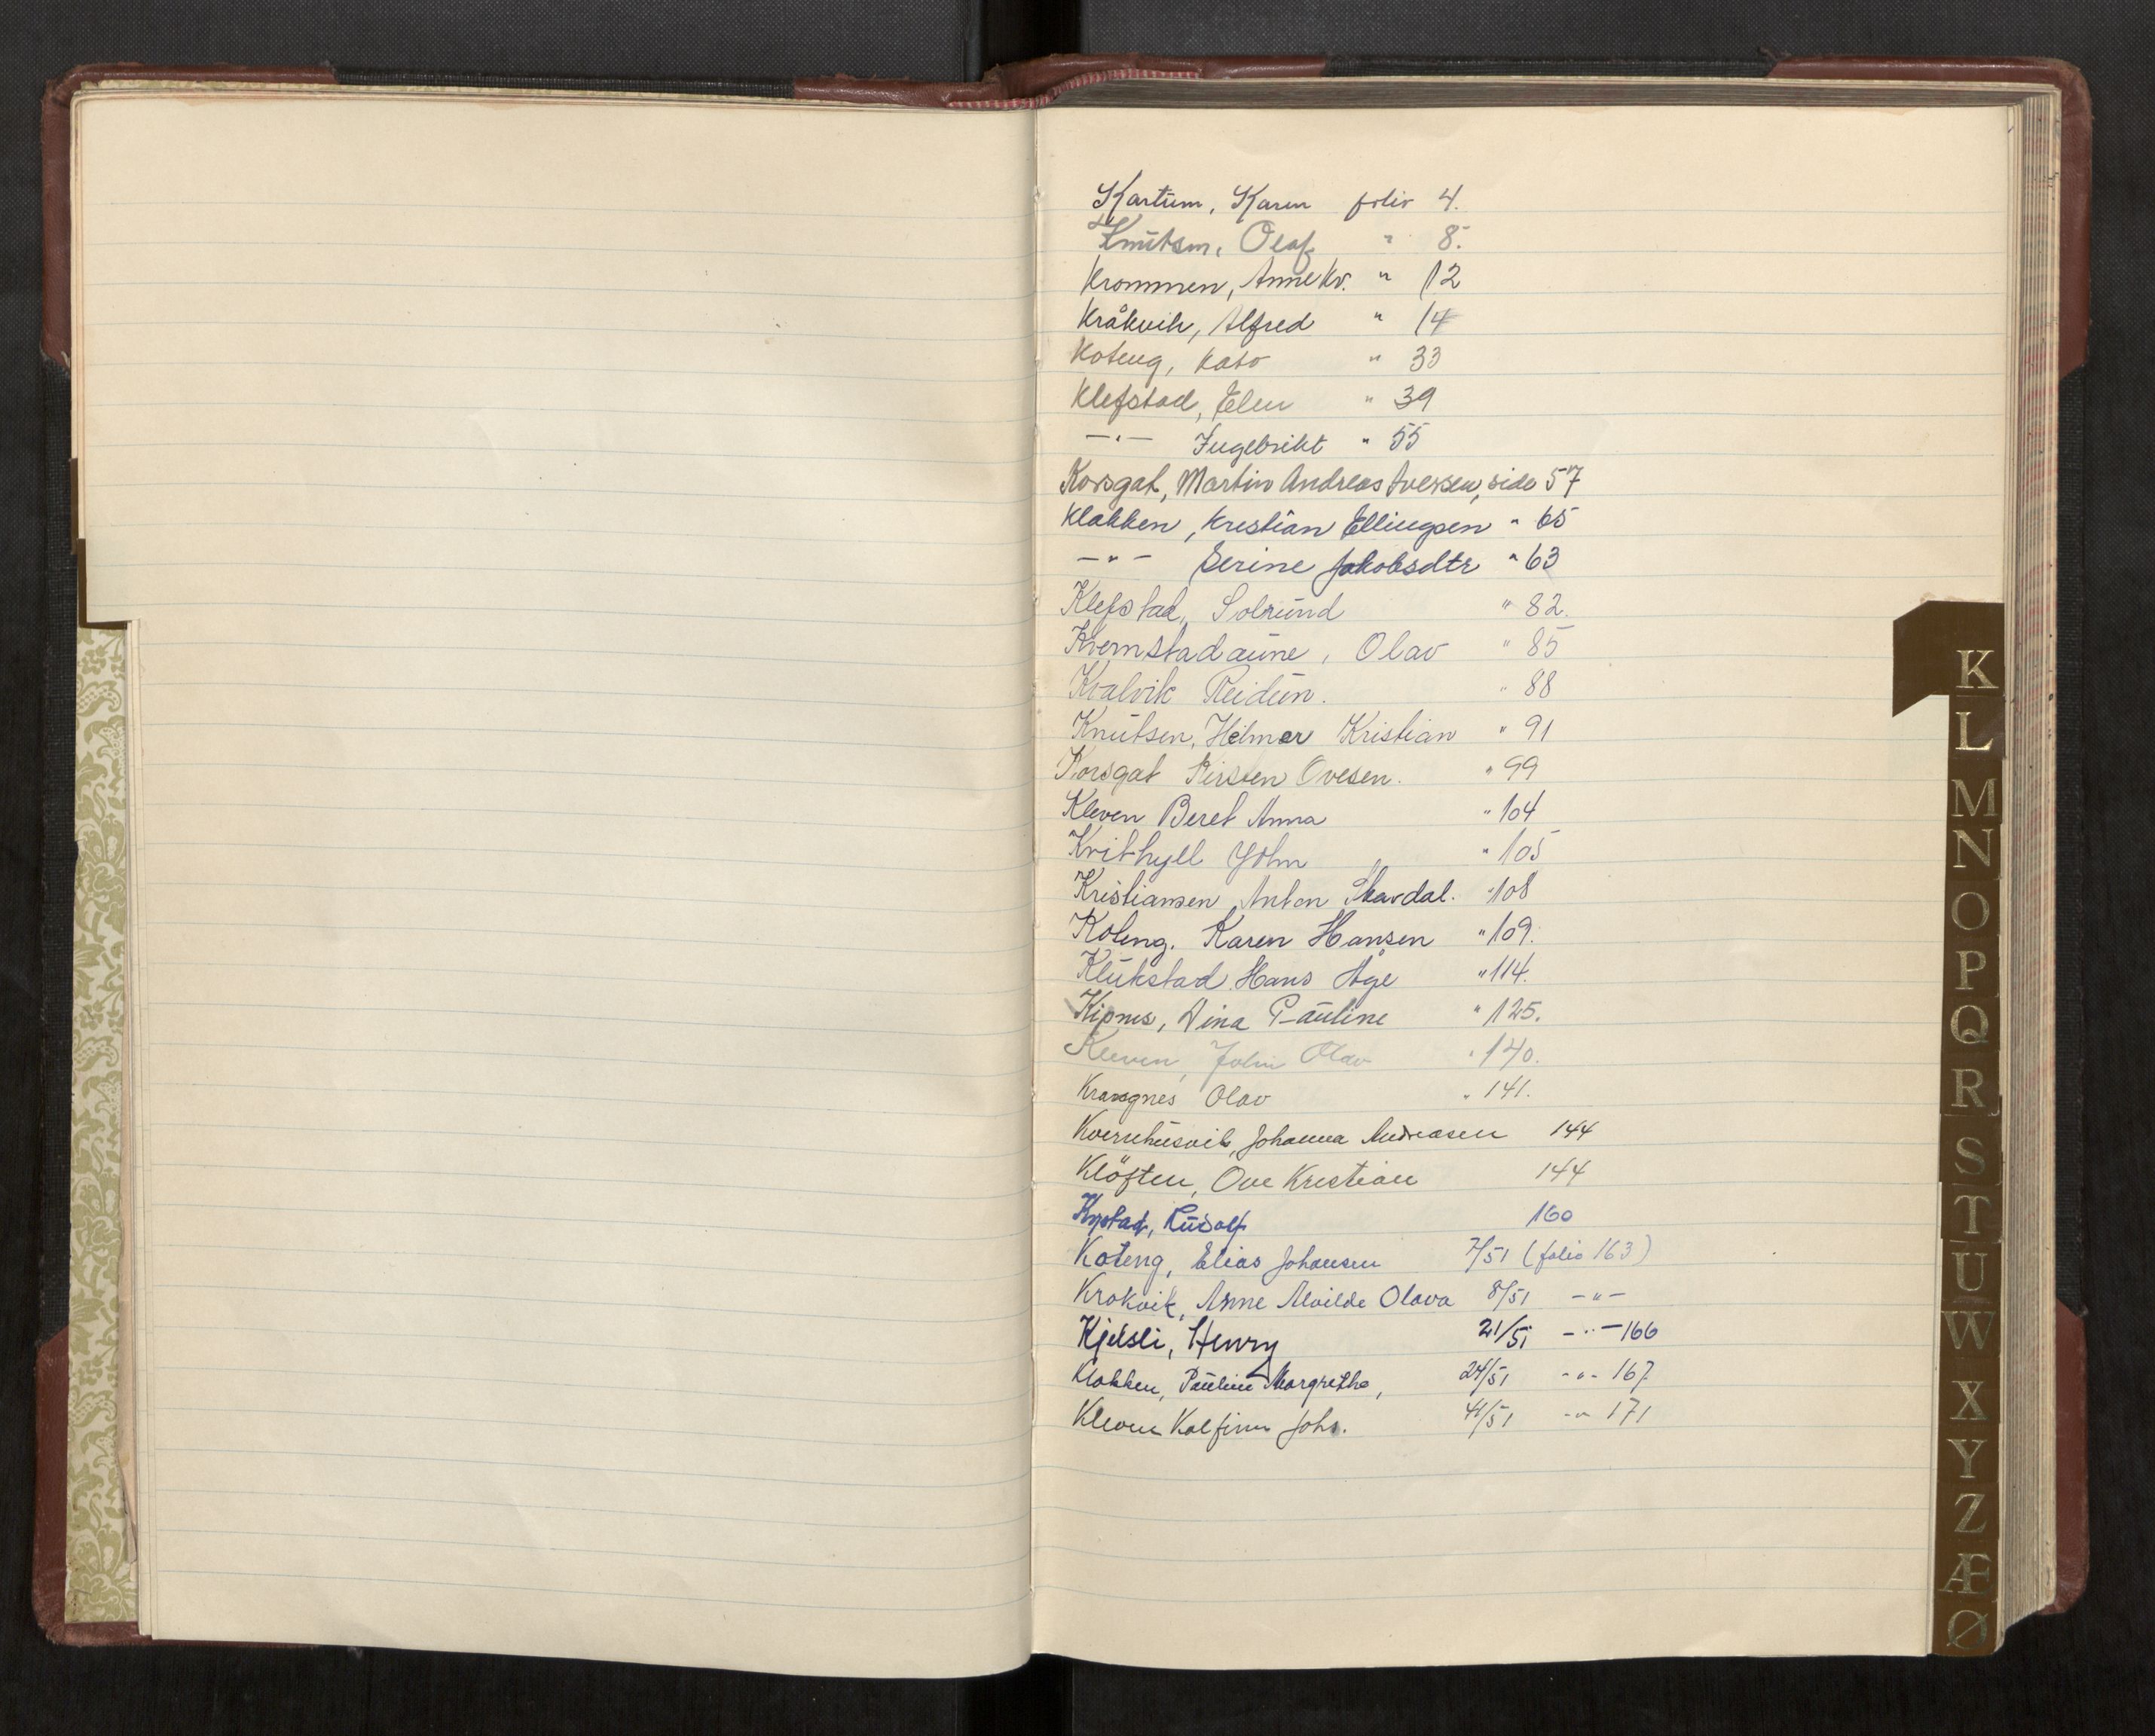 Kartum, Karen folio 4.
Knutsen, Olaf " 8.
Krommen, Anne Kr. " 12
Kråkvik, Alfred " 14
Koteng, Kato " 33
Klefstad, Elen " 39
—"— Ingebrikt " 55
Korsgat, Martin Andreas Iversen, side 57
Klakken, Kristian Ellingsen " 65
—"— Serine Jakobsdtr " 63
Klefstad, Solrund " 82.
Kvernstadaune, Olav " 85
Kvalvik Reidun. " 88
Knutsen, Helmer Kristian " 91
Korsgat Kirsten Ovesen. " 99
Kleven Beret Anna " 104
Krithyll John " 105
Kristiansen Anton Skardal. " 108
Koteng. Karen Hansen " 109.
Klukstad Hans Åge " 114.
Kipnes, Dina Pauline " 125.
Kleven, John Olav " 140.
Kraagnes Olav " 141.
Kvernhusvik, Johanna Andreasen 144
Klöften, Ove Kristian 144
Kystad, Rudolf 160
Koteng, Elias Johansen 7/51 (folio 163)
Krokvik, Anne Alvilde Olava 8/51 —"—
Kjelsli, Henry 21/51 —"— 166
Klakken, Pauline Margrethe, 24/51 -"- 167
Kleven Kolfinn Johs. 41/51 -"- 171
K
L
M
N
O
P
Q
R
S
T
U
W
X
Y
Z
Æ
Ø